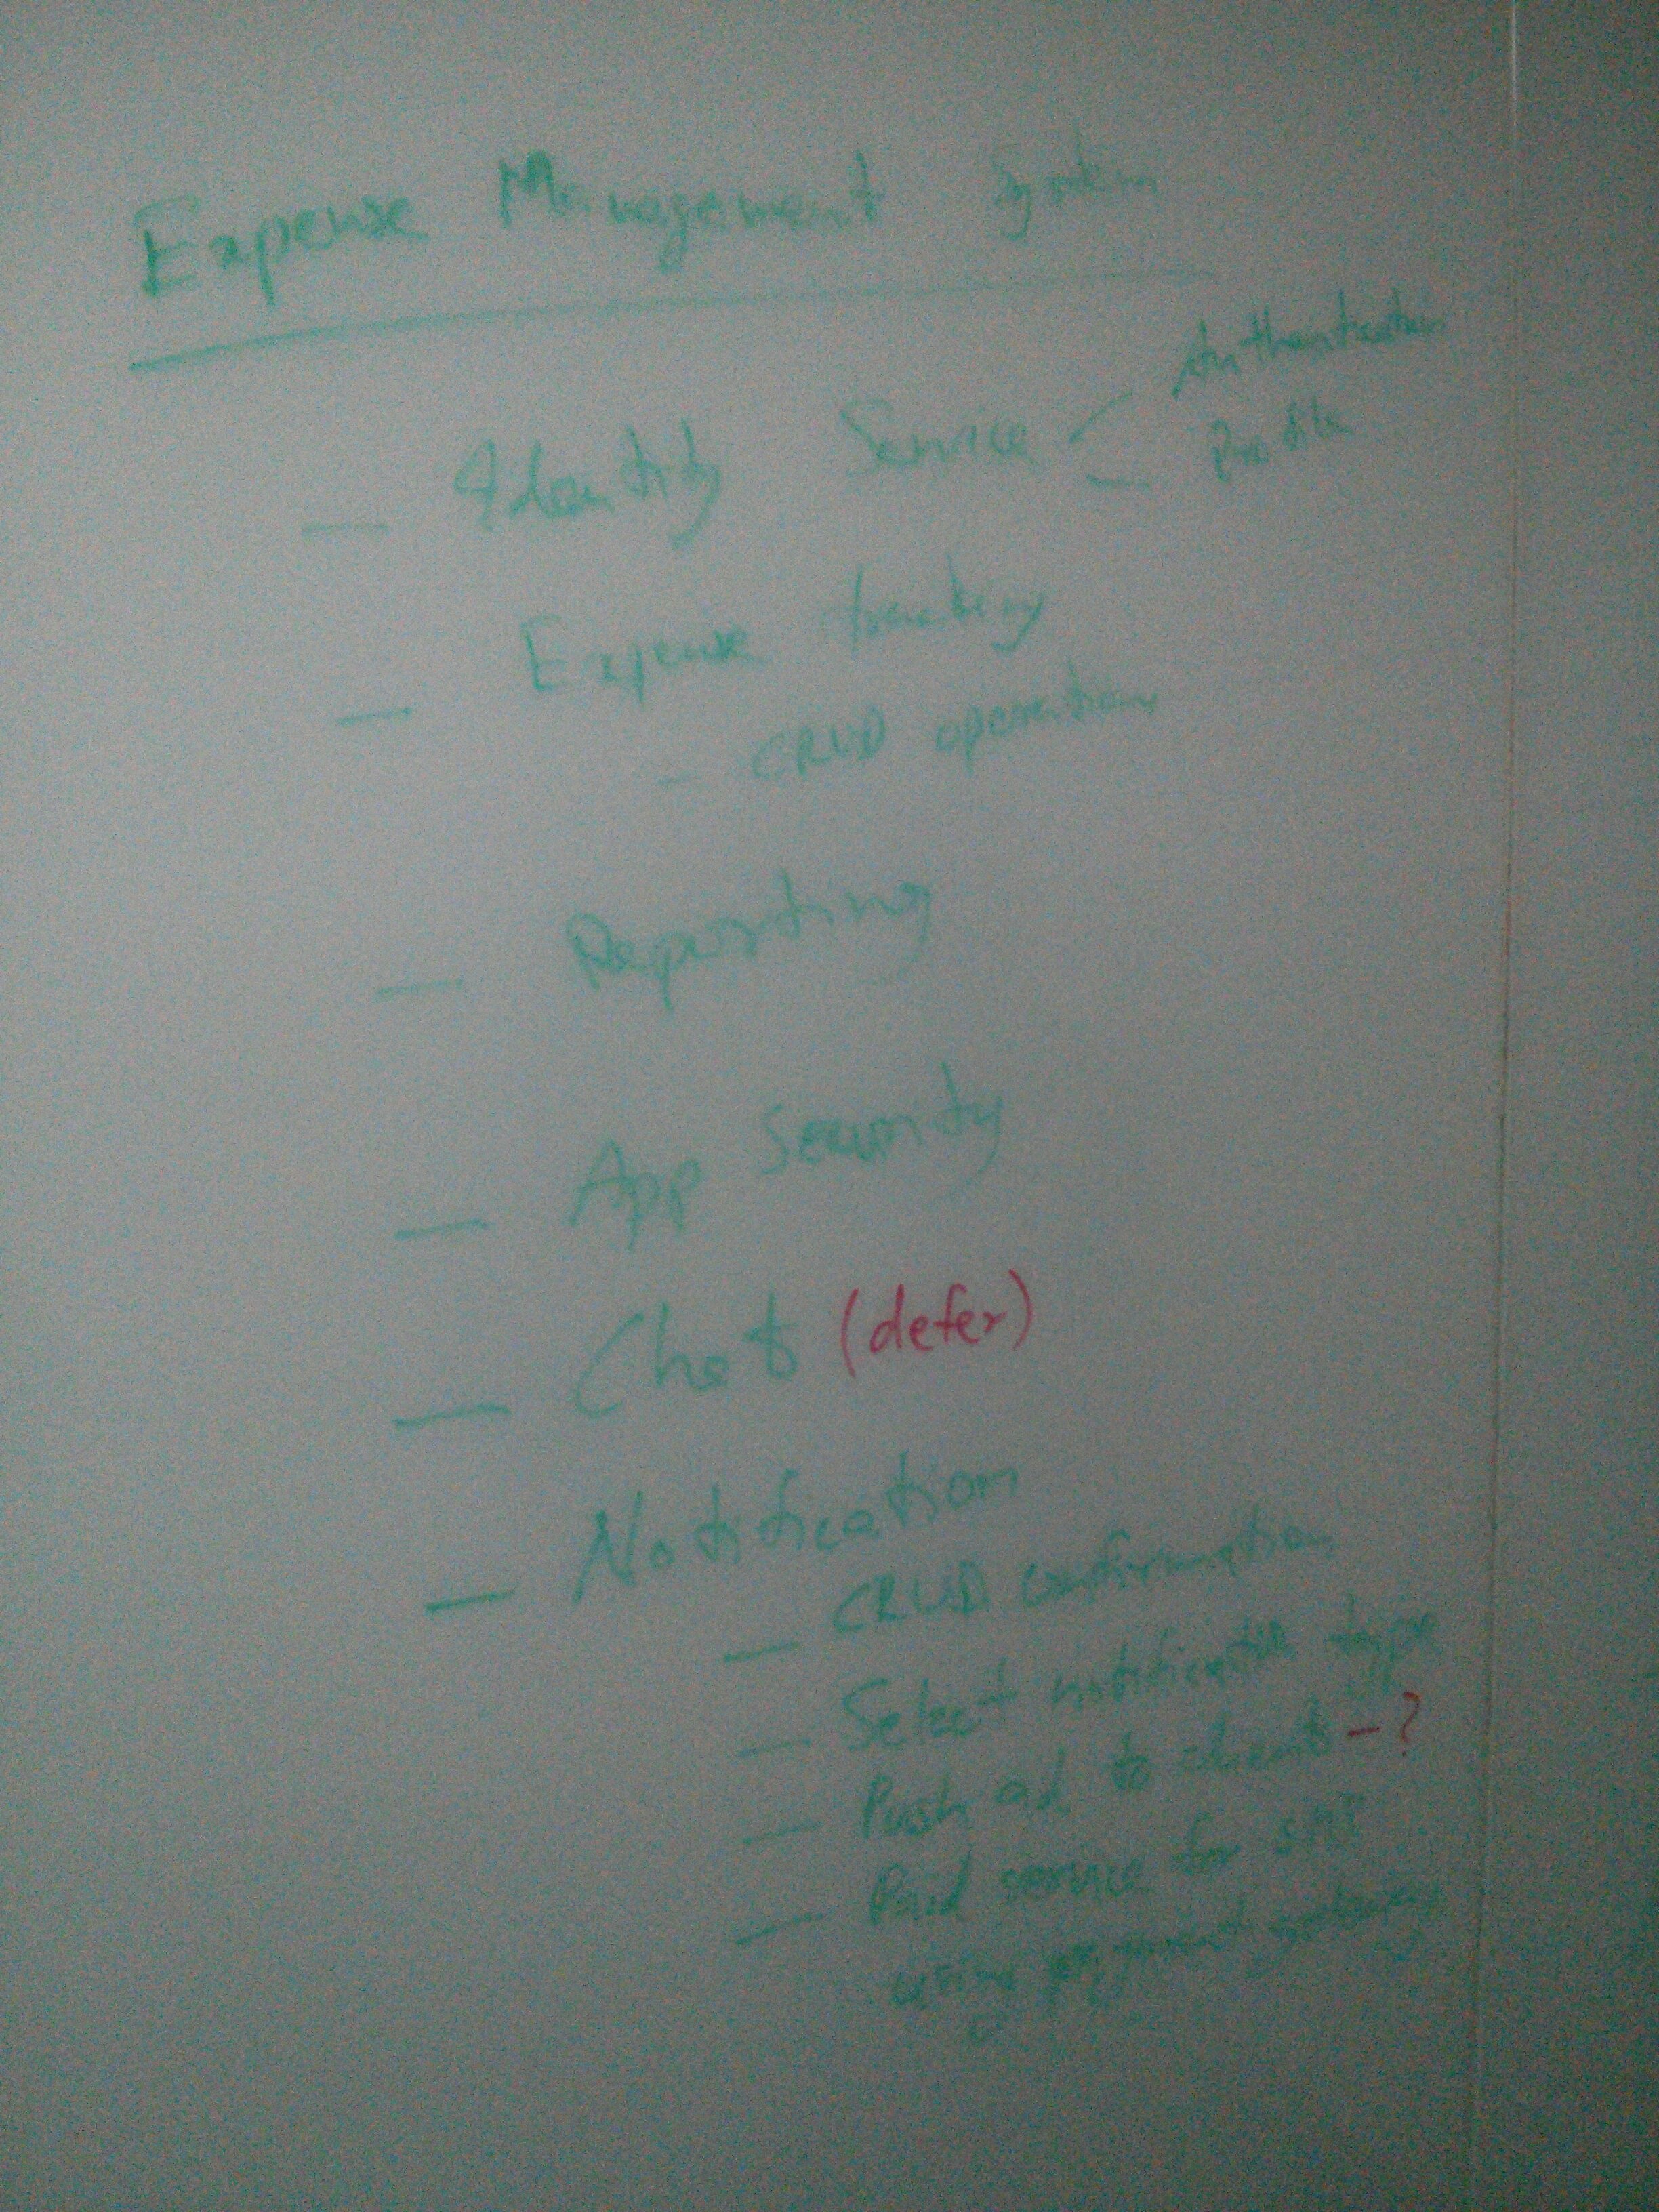 Expense Management System
— Identity Service < Authentication
Profile
— Expense tracking
- CRUD operations
— Reporting
— App Security
— Chat (defer)
— Notification
— CRUD confirmation
— Select notification type
— Push ad to client - ?
— Paid service for SMS
using payment gateway